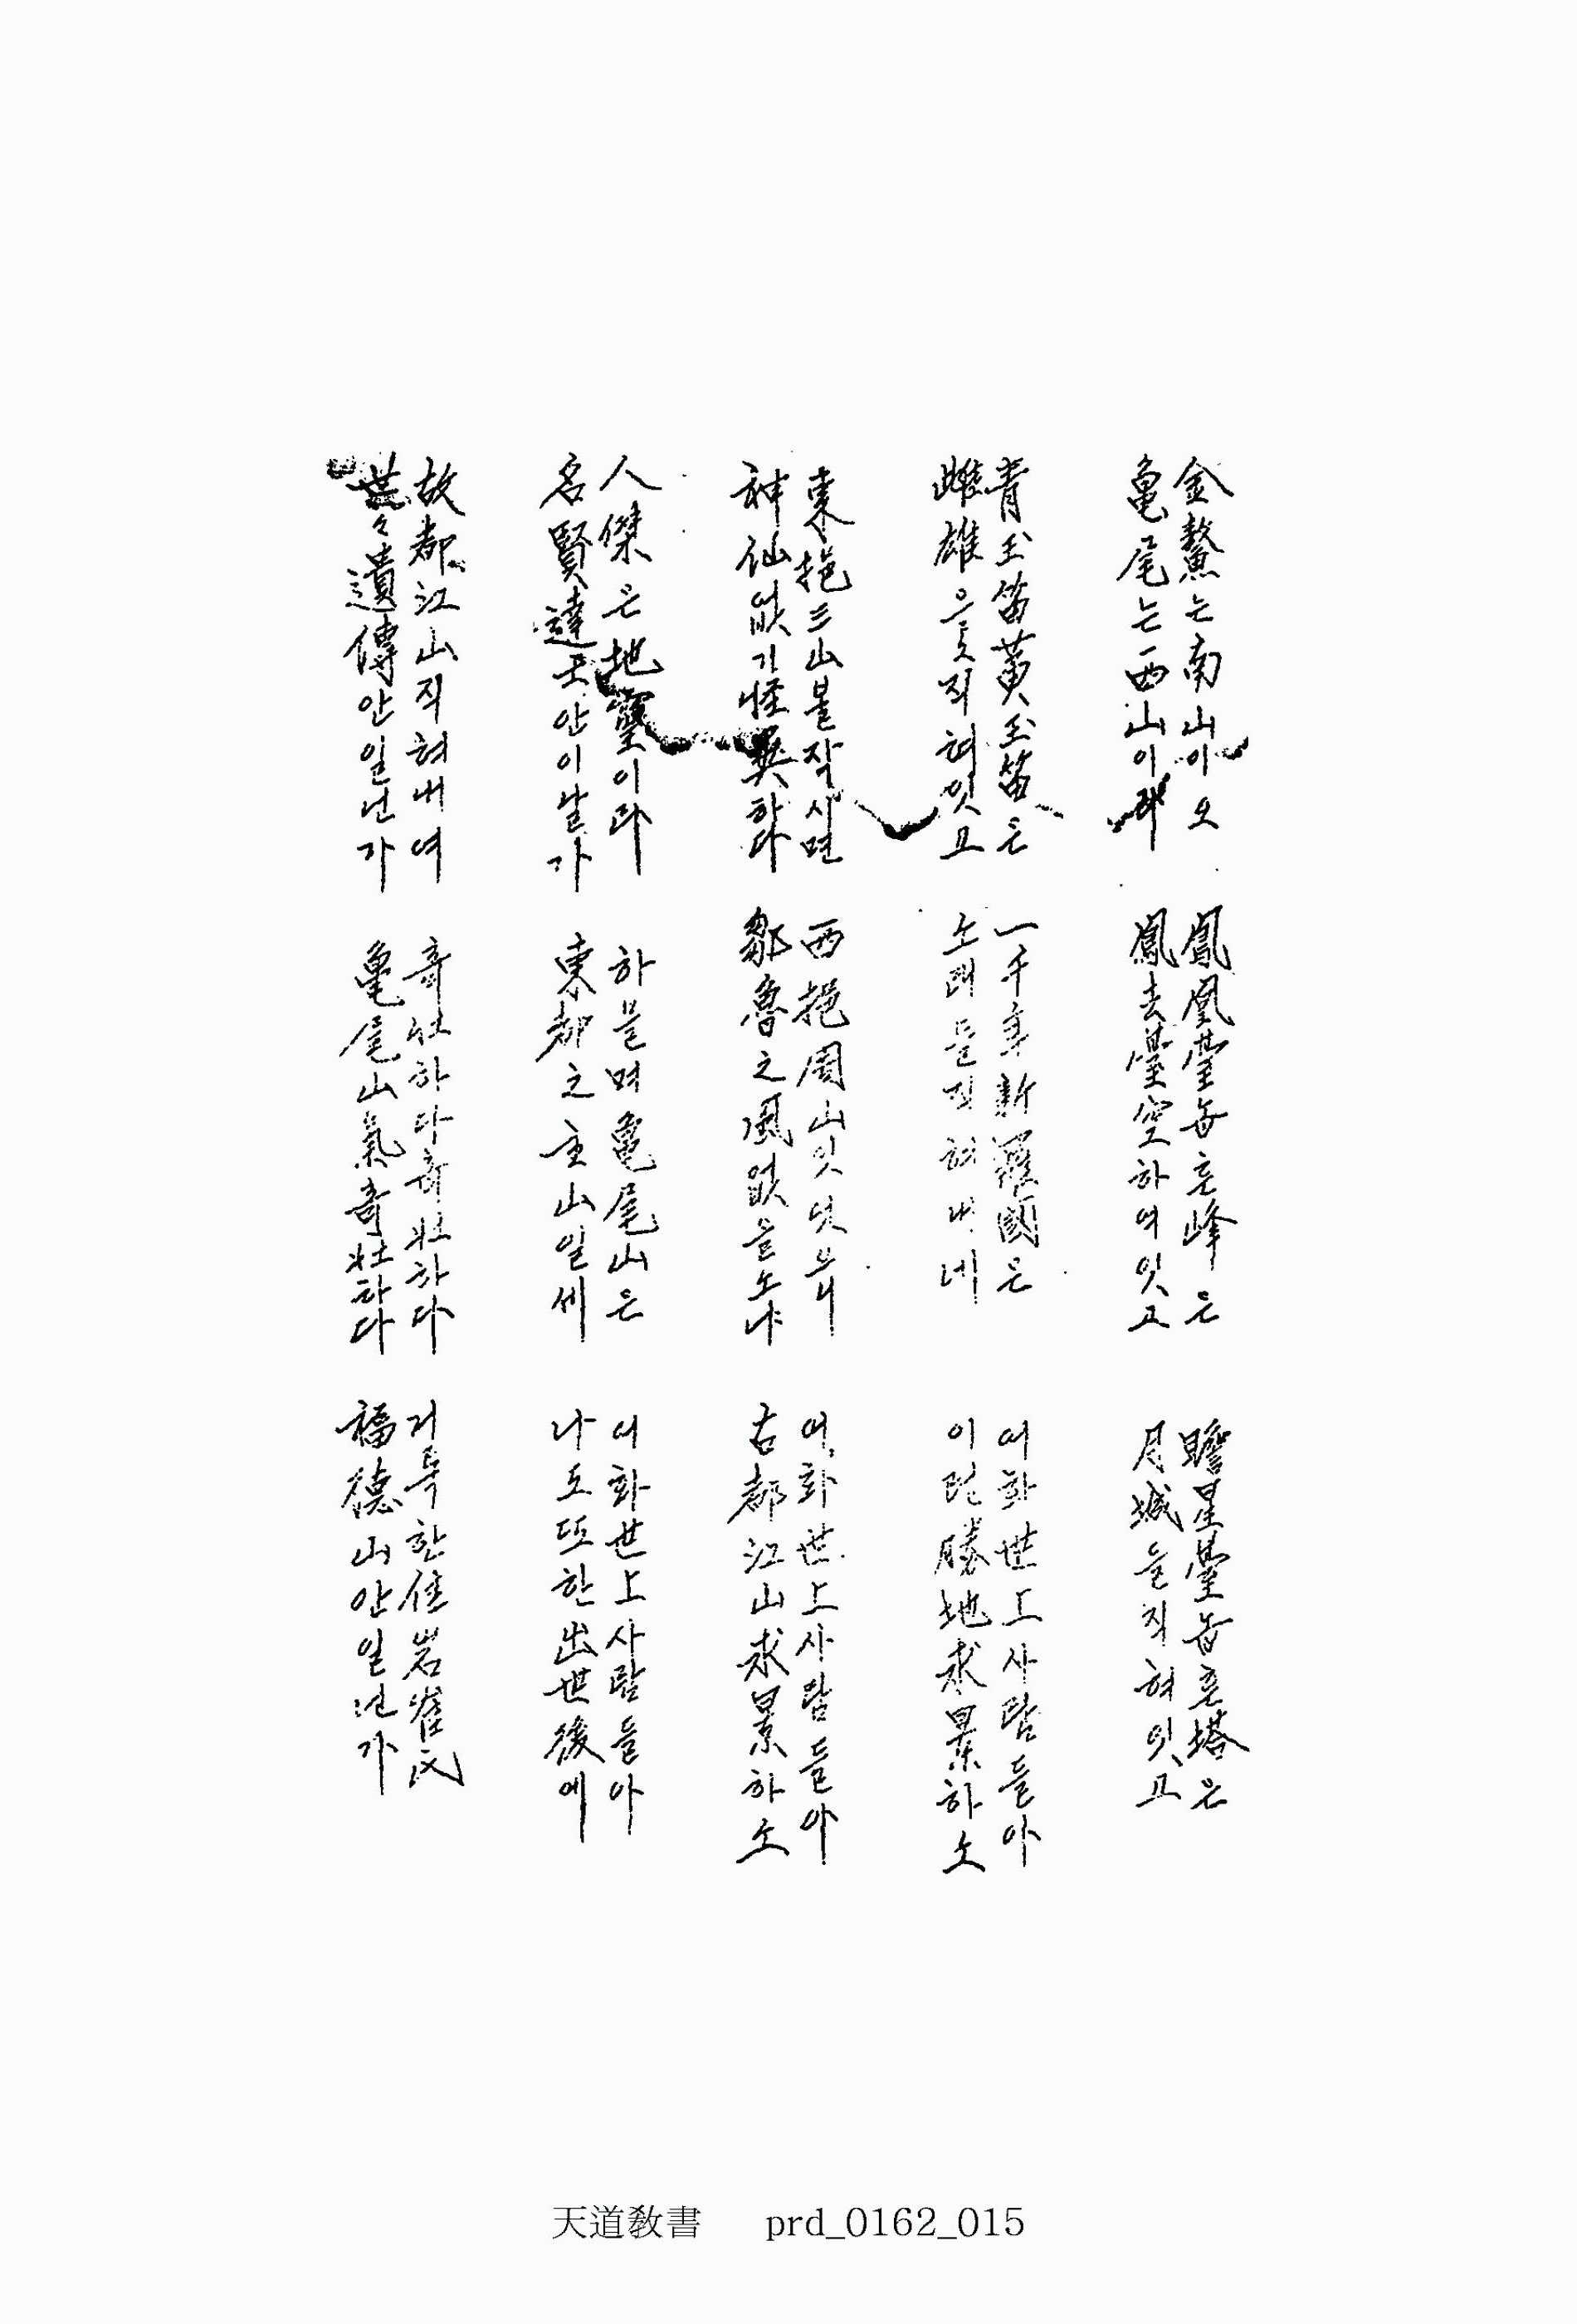 金鰲는南山이오
亀尾는西山이라
鳳凰臺놉흔峰은
鳳去臺空하여잇고
瞻星臺놉흔塔은
月城을직혀잇고
青玉笛黃玉笛은
雌雄으로직혀잇고
一千年新羅國은
소래를직혀내네
어화世上사람들아
이런勝地求景하소
東挹三山볼작시면
神仙업기怪異하다
西挹周山잇엇으니
鄒魯之風업을소냐
어화世上사람들아
古都江山求景하소
人傑은地靈이라
名賢達士안이날가
하믈며亀尾山은
東都之主山일세
어화世上사람들아
나도또한出世後에
故都江山직혀내여
世々遺傳안일넌가
奇壮하다奇壮하다
亀尾山氣奇壮하다
거룩한佳岩崔氏
福德山안일넌가
天道敎書 prd_0162_015